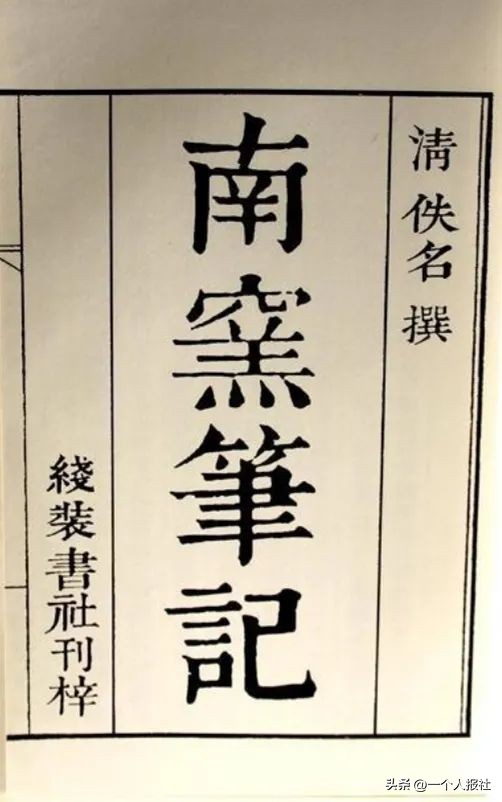 清 佚名 撰
南窯筆記
綫裝書社刊梓
头条 @一个人报社